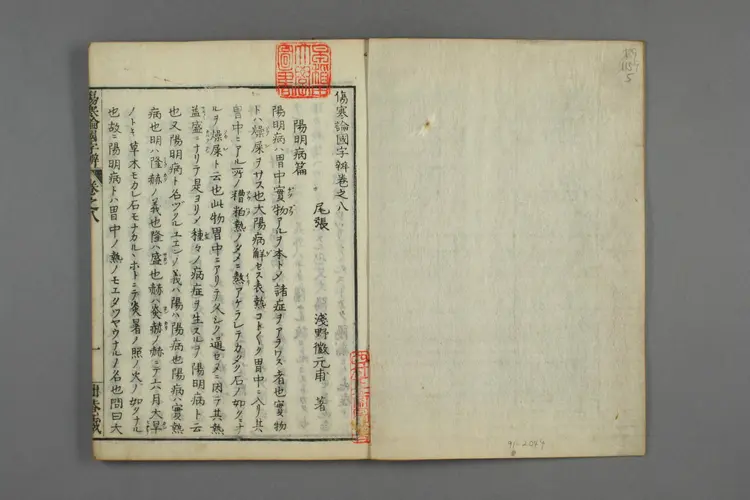 傷寒論國字辨卷之八
尾張 淺野徽元甫 著
陽明病篇
陽明病ハ胃中實物アルヲ本トメ諸症ヲアラワス者也實物
トハ燥屎ヲサス也太陽病解セス表熱コトゴトク胃中ニ入リ其
胃中ニアル所ノ糟粕熱ノタメニ熱アゲラレテカタクリ石ノ如クニナ
ルヲ燥屎ト云也此物胃中ニアリテ久シク通セヌニ因テ其熱
益盛ニナリテ是ヨリメ種々ノ病症ヲ生スルヲ陽明病ト云
也又陽明病ト名ヅクルユエンノ義ハ陽ハ陽病也陽病ハ實熱
病也明ハ隆赫ノ義也隆ハ盛也赫ハ炎赫ノ赫ニテ六月大旱
ノトキ草木モカレ石モナカルヽホトニテ炎暑ノ照ノ火ノ如クナル
也故ニ陽明病トハ胃中ノ熱ノモエタツヤウナルノ名也問曰太
傷寒論國字辨 卷之八 一